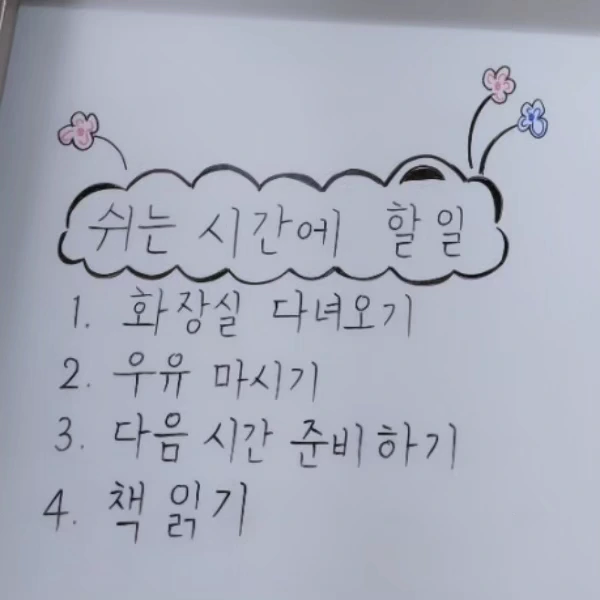 쉬는 시간에 할 일
1. 화장실 다녀오기
2. 우유 마시기
3. 다음 시간 준비하기
4. 책 읽기